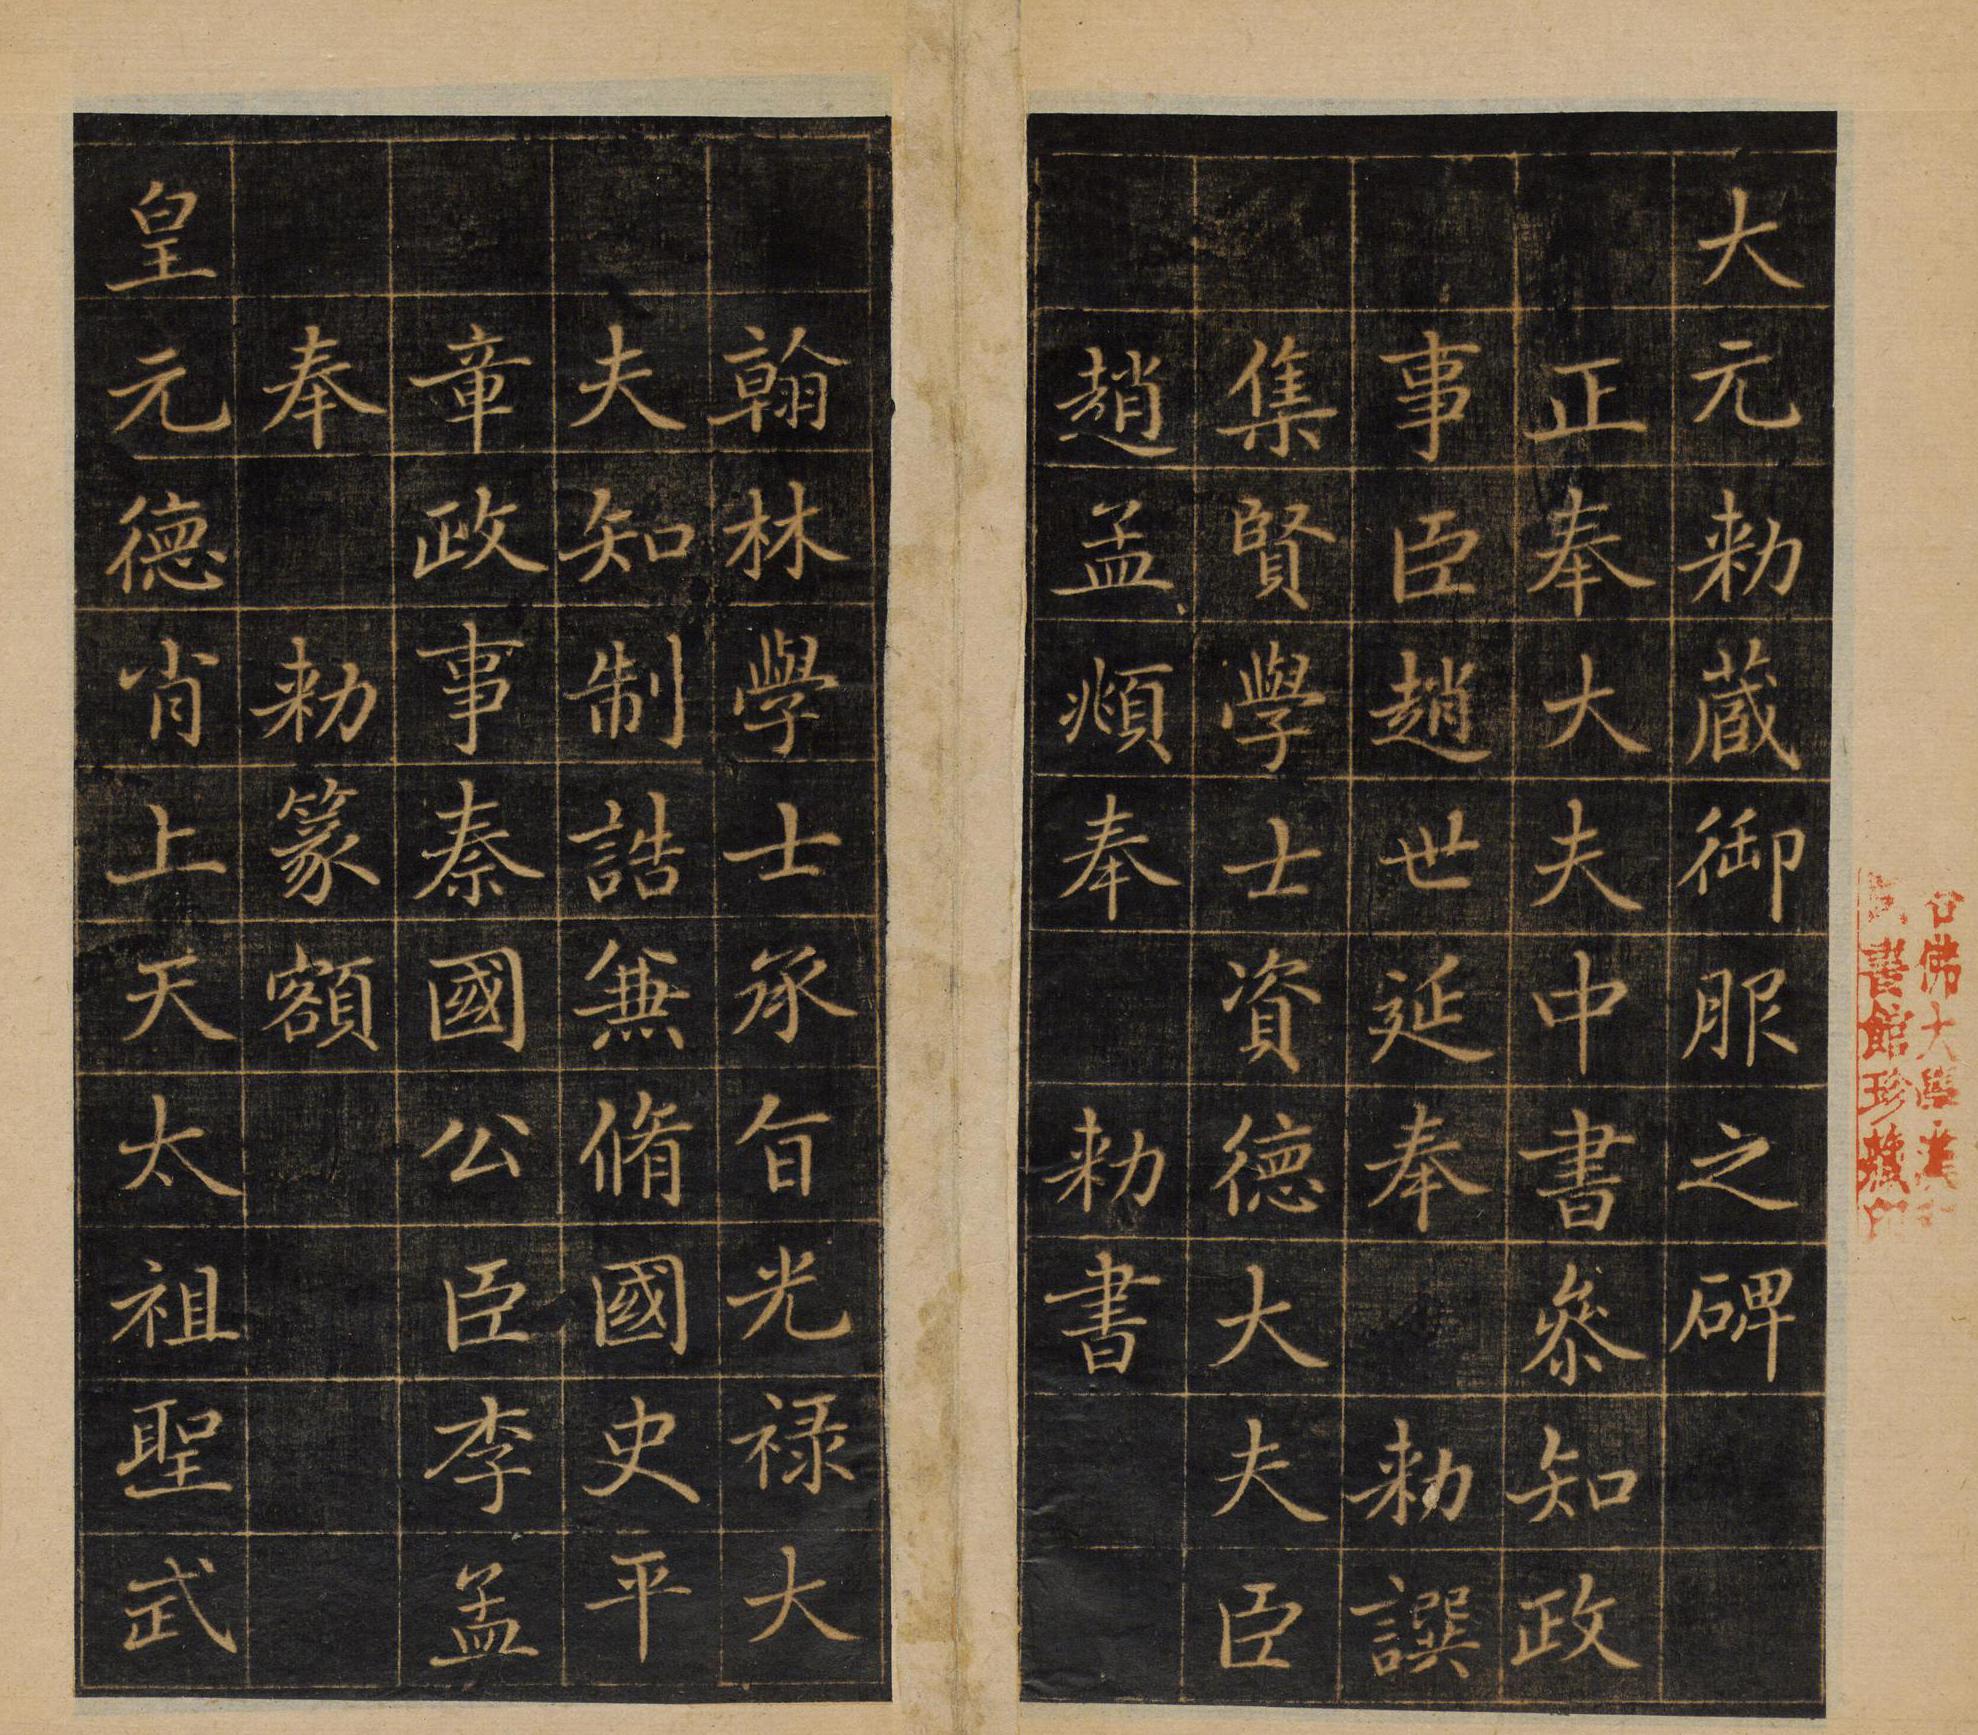 大元勑藏御服之碑
正奉大夫中書叅知政
事臣趙世延奉勑譔
集賢學士資德大夫臣
趙孟頫奉勑書
翰林學士承旨光祿大
夫知制誥兼脩國史平
章政事秦國公臣李孟
奉勑篆額
皇元德肖上天太祖聖武
佛大學漢
書館珍藏印